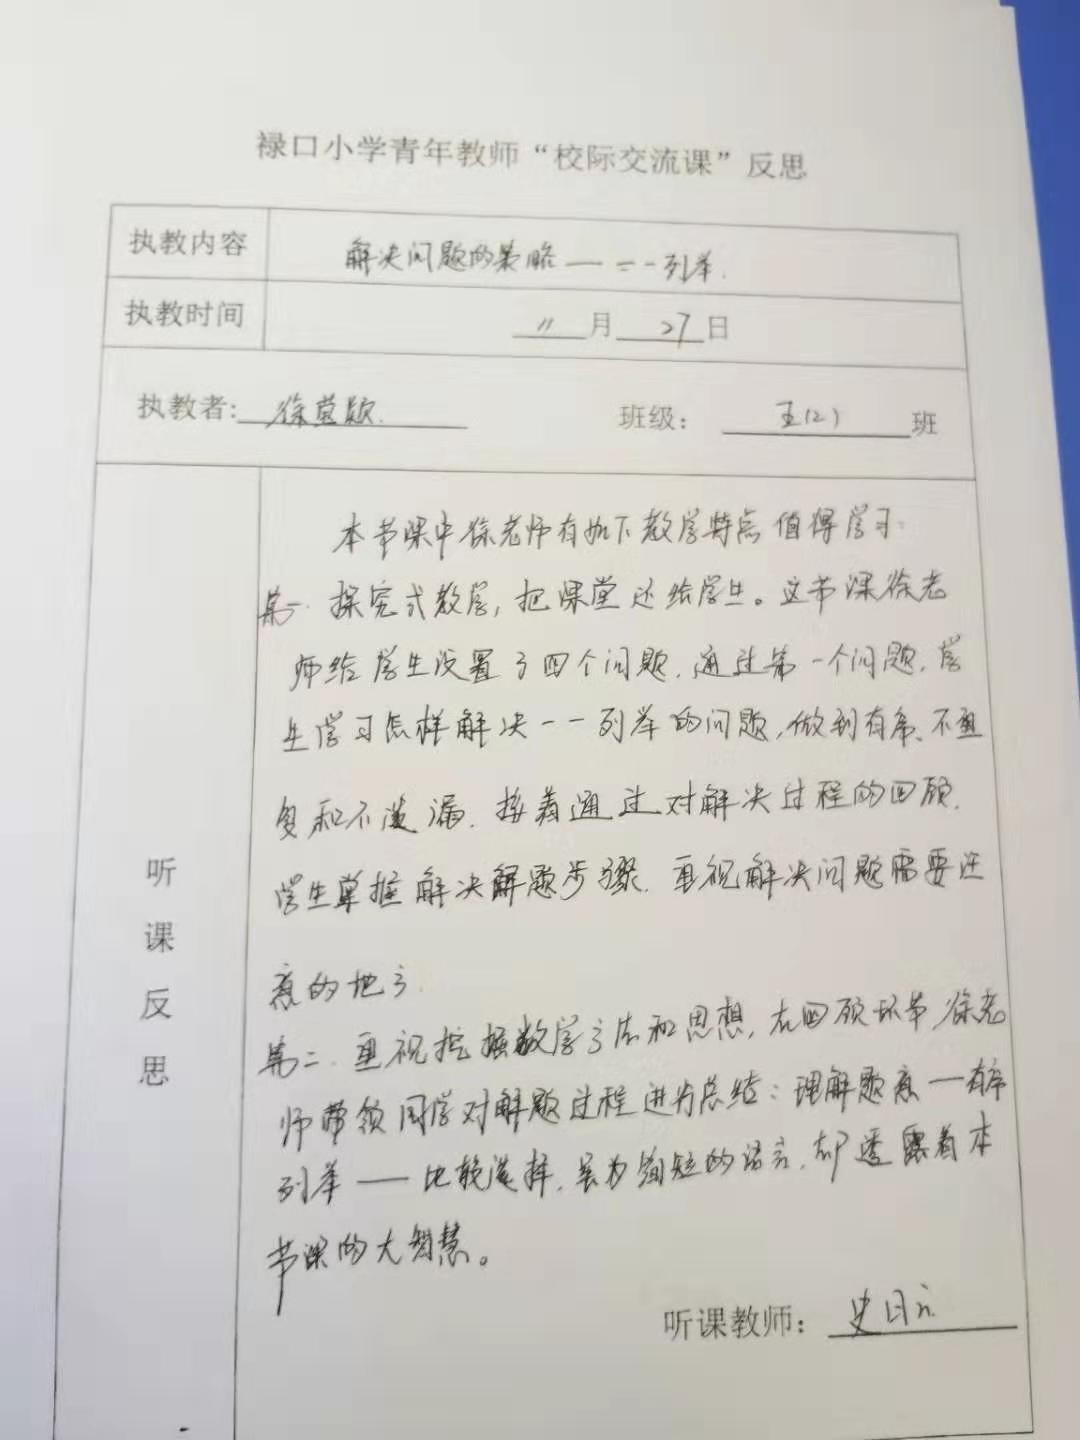 禄口小学青年教师“校际交流课”反思
执教内容 解决问题的策略——一一列举.
执教时间 11月27日
执教者: 徐莹颖. 班级: 五(2)班
听课反思
本节课中徐老师有如下教学特点值得学习:
第一. 探究式教学, 把课堂还给学生。这节课徐老
师给学生设置了四个问题. 通过第一个问题. 学
生学习怎样解决一一列举的问题, 做到有序、不重
复和不遗漏. 接着通过对解决过程的回顾.
学生掌握解决解题步骤. 重视解决问题需要注
意的地方.
第二. 重视挖掘数学方法和思想, 在回顾环节徐老
师带领同学对解题过程进行总结: 理解题意—有序
列举——比较选择. 虽为简短的语言, 却透露着本
节课的大智慧。
听课教师: 史